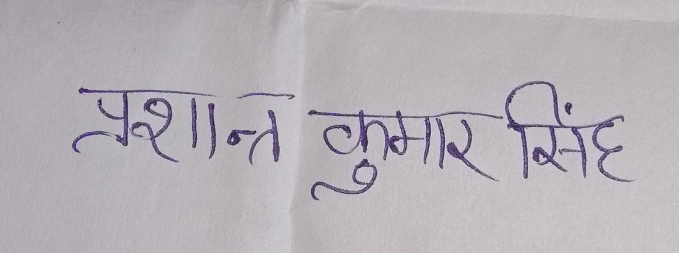 प्रशान्त कुमार सिंह